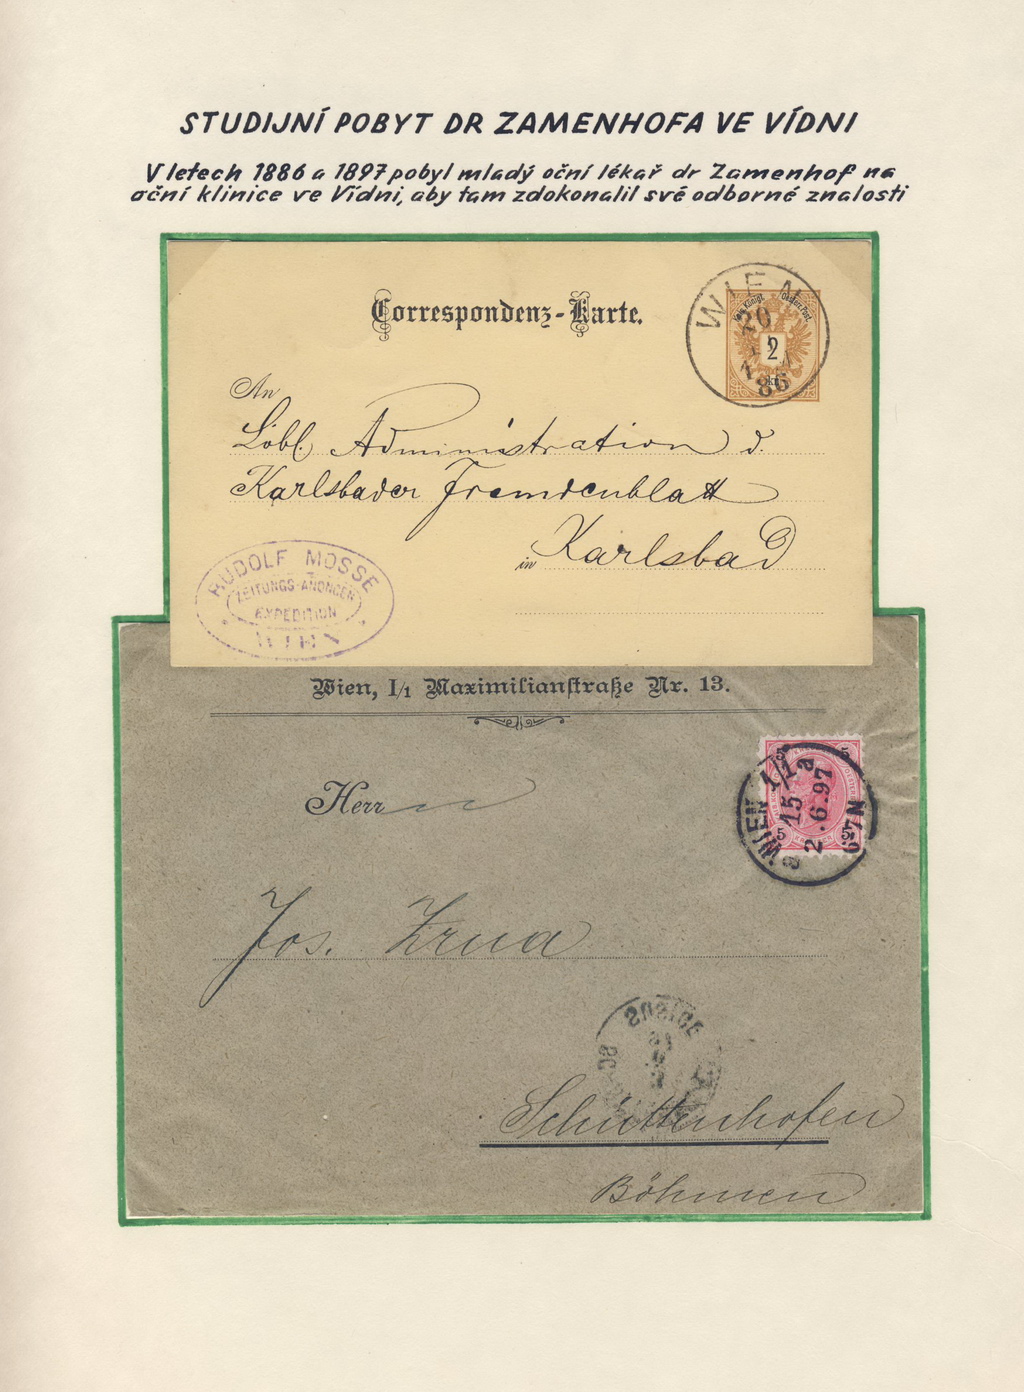 STUDIJNÍ POBYT DR ZAMENHOFA VE VÍDNI
V letech 1886 a 1897 pobyl mladý oční lékař dr Zamenhof na
oční klinice ve Vídni, aby tam zdokonalil své odborné znalosti
Correspondenz-Karte.
WIEN
20
86
Kais. Königl. Oesterr. Post.
2
An
Löbl. Administration d.
Karlsbader Fremdenblatt
in Karlsbad
RUDOLF MOSSE
ZEITUNGS-ANONCEN
EXPEDITION
WIEN
Wien, I/1 Maximilianstraße Nr. 13.
5 5
5 5
WIEN 1/1 a
15
2.6.97
6-7N
Herrn
Jos. Zrua
SUŠICE
Schüttenhofen
Böhmen